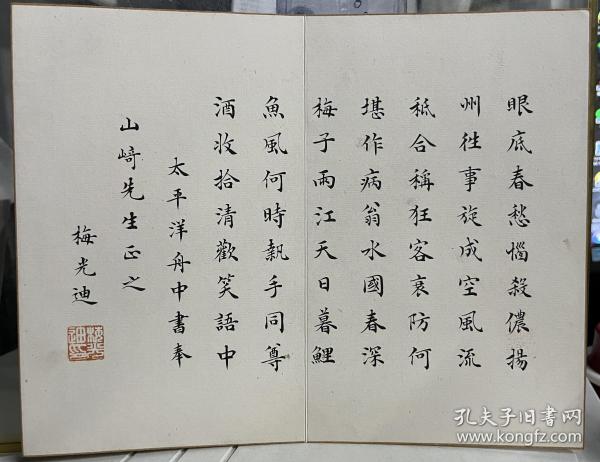 眼底春愁惱殺儂揚
州徃事旋成空風流
秪合稱狂客哀防何
堪作病翁水國春深
梅子雨江天日暮鯉
魚風何時執手同尊
酒收拾清歡笑語中
太平洋舟中書奉
山﨑先生正之
梅光迪
梅光迪印
孔夫子旧书网
www.kongfz.com